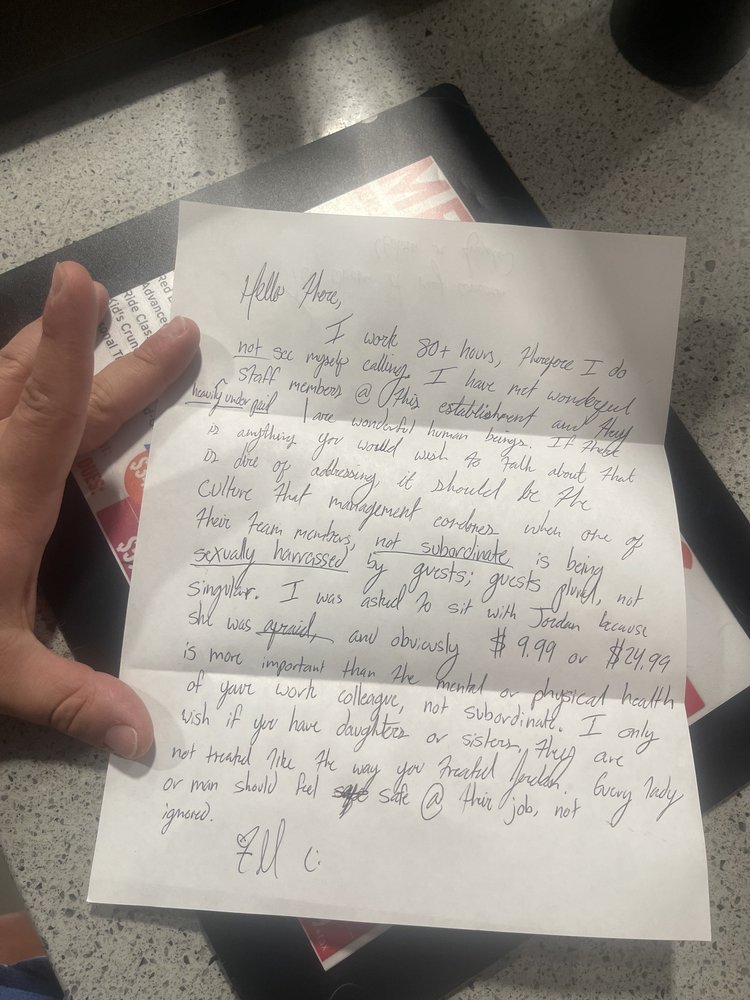 ME
Red
Advance
Ride Clas
Kid's Crun
onal T
Hello there,
I work 80+ hours, therefore I do
not see myself calling. I have met wonderful
staff members @ this establishment and they
heavily under paid / are wonderful human beings. If there
is anything you would wish to talk about that
is dire of addressing, it should be the
culture that management condones when one of
their team members, not subordinate is being
sexually harrassed by guests; guests plural, not
singular. I was asked to sit with Jordan because
she was afraid, and obviously $9.99 or $24.99
is more important than the mental or physical health
of your work colleague, not subordinate. I only
wish if you have daughters or sisters, they are
not treated like the way you treated Jordan. Every lady
or man should feel safe @ their job, not
ignored.